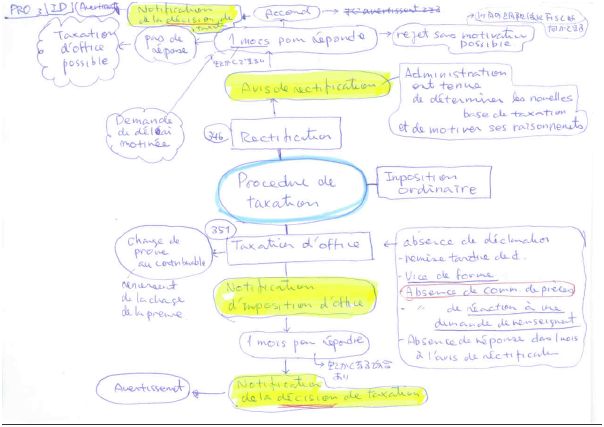 PRO 3/ID
Notification
de la décision de
taxat.
Accord
Taxation
d'office
possible
pas de
réponse
1 mois pour répondre
rejet sans motivation
possible
Avis de rectification
Administration
est tenue
de déterminer les nouvelles
base de taxation
et de motiver ses raisonnements
Demande
de délai
motivée
346
Rectification
Procédure de
taxation
Imposition
ordinaire
351
Taxation d'office
Charge de
preuve
au contribuable
renversement
de la charge
de la preuve
absence de déclaration
- remise tardive de d.
- Vice de forme
- Absence de comm. de pièces
- " de réaction à une
demande de renseignent
- Absence de réponse dans 1 mois
à l'avis de rectification
Notification
d'imposition d'office
1 mois pour répondre
Notification
de la décision de taxation
Avertissement